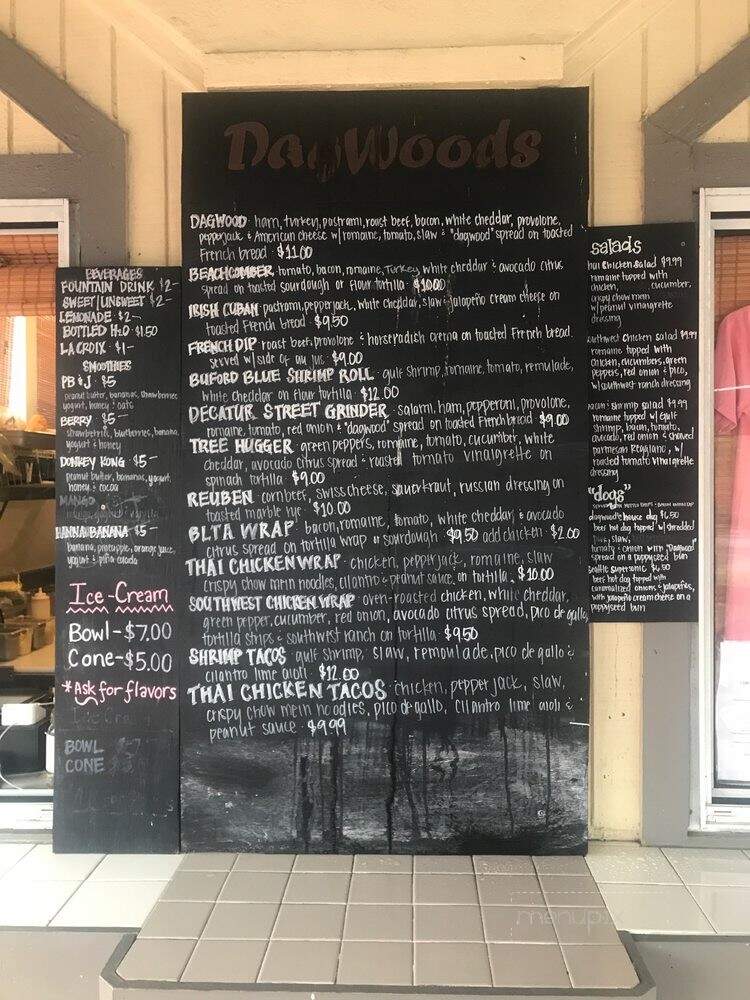 DagWoods
BEVERAGES
FOUNTAIN DRINK $2-
SWEET|UNSWEET $2-
LEMONADE $2-
BOTTLED H2O $1.50
LA CROIX $1-
SMOOTHIES
PB & J $5
peanut butter, bananas, strawberries
yogurt, honey & oats
BERRY $5-
strawberries, blueberries, banana,
yogurt & honey
DONKEY KONG $5-
peanut butter, bananas, yogurt,
honey & cocoa
MANGO
HANNA BANANA $5-
banana, pineapple, orange juice,
yogurt & piña colada
Ice-Cream
Bowl-$7.00
Cone-$5.00
*Ask for flavors
BOWL
CONE
DAGWOOD ham, turkey, pastrami, roast beef, bacon, white cheddar, provolone,
pepperjack & American cheese w/ romaine, tomato, slaw & "dagwood" spread on toasted
French bread $11.00
BEACHCOMBER tomato, bacon, romaine, Turkey, white cheddar & avocado citrus
spread on toasted sourdough or flour tortilla $10.00
IRISH CUBAN pastrami, pepperjack, white cheddar, slaw & jalapeño cream cheese on
toasted French bread $9.50
FRENCH DIP roast beef, provolone & horseradish crema on toasted French bread
served w/ side of au jus $9.00
BUFORD BLUE SHRIMP ROLL gulf shrimp, romaine, tomato, remulade,
white cheddar on flour tortilla $12.00
DECATUR STREET GRINDER salami, ham, pepperoni, provolone,
romaine, tomato, red onion & "dagwood" spread on toasted French bread $9.00
TREE HUGGER green peppers, romaine, tomato, cucumber, white
cheddar, avocado citrus spread & roasted tomato vinaigrette on
spinach tortilla $9.00
REUBEN corn beef, swiss cheese, sauerkraut, russian dressing on
toasted marble rye $10.00
BLTA WRAP bacon, romaine, tomato, white cheddar, & avocado
citrus spread on tortilla wrap or sourdough $9.50 add chicken $2.00
THAI CHICKEN WRAP chicken, pepperjack, romaine, slaw
crispy chow mein noodles, cilantro & peanut sauce, on tortilla $10.00
SOUTHWEST CHICKEN WRAP oven-roasted chicken, white cheddar,
green pepper, cucumber, red onion, avocado citrus spread, pico de gallo,
tortilla strips & southwest ranch on tortilla $9.50
SHRIMP TACOS gulf shrimp, slaw, remoulade, pico de gallo &
cilantro lime aioli $12.00
THAI CHICKEN TACOS chicken, pepper jack, slaw,
crispy chow mein noodles, pico de gallo, cilantro lime aioli &
peanut sauce $9.99
salads
thai chicken salad $9.99
romaine topped with
chicken, cucumber,
crispy chow mein
w/ peanut vinaigrette
dressing
southwest chicken salad $9.99
romaine topped with
chicken, cucumbers, green
peppers, red onion & pico,
w/ southwest ranch dressing
bacon & shrimp salad $9.99
romaine topped w/ gulf
shrimp, bacon, tomato,
avocado, red onion & shaved
parmesan reggiano, w/
roasted tomato vinaigrette
dressing
"dogs"
dagwoods house dog $6.50
beef hot dog topped w/ shredded
slaw,
tomato & onion with "Dagwood"
spread on a poppyseed bun
Seattle supersonic $6.50
beef hot dog topped with
caramelized onions & jalapeños,
with jalapeño cream cheese on a
poppyseed bun
menupix